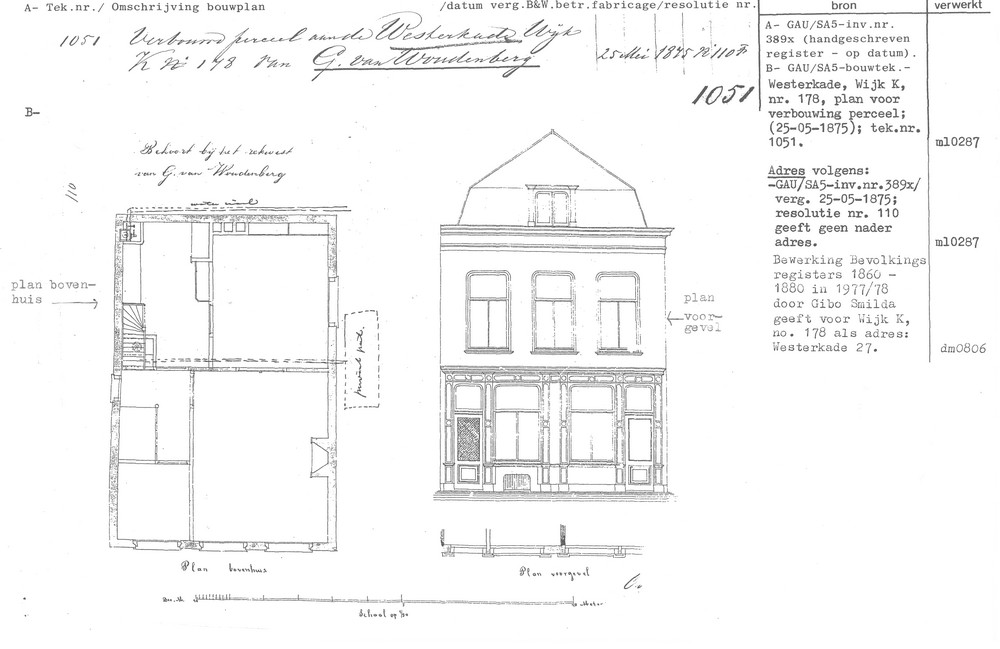 A- Tek.nr./ Omschrijving bouwplan
/datum verg.B&W.betr.fabricage/resolutie nr.
bron
verwerkt
1051 Verbouw perceel aan de Westerkade Wijk
K No 178 van G. van Woudenberg
25 Mei 1875 No 110 F
1051
A- GAU/SA5-inv.nr.
389x (handgeschreven
register - op datum).
B- GAU/SA5-bouwtek.-
Westerkade, Wijk K,
nr. 178, plan voor
verbouwing perceel;
(25-05-1875); tek.nr.
1051.
ml0287
Adres volgens:
-GAU/SA5-inv.nr.389x/
verg. 25-05-1875;
resolutie nr. 110
geeft geen nader
adres.
ml0287
Bewerking Bevolkings
registers 1860 -
1880 in 1977/78
door Gibo Smilda
geeft voor Wijk K,
no. 178 als adres:
Westerkade 27.
dm0806
B-
Behoort bij het rekwest
van G. van Woudenberg
110
plan boven-
huis
plan
voor-
gevel
Plan bovenhuis
Plan voorgevel
Schaal op